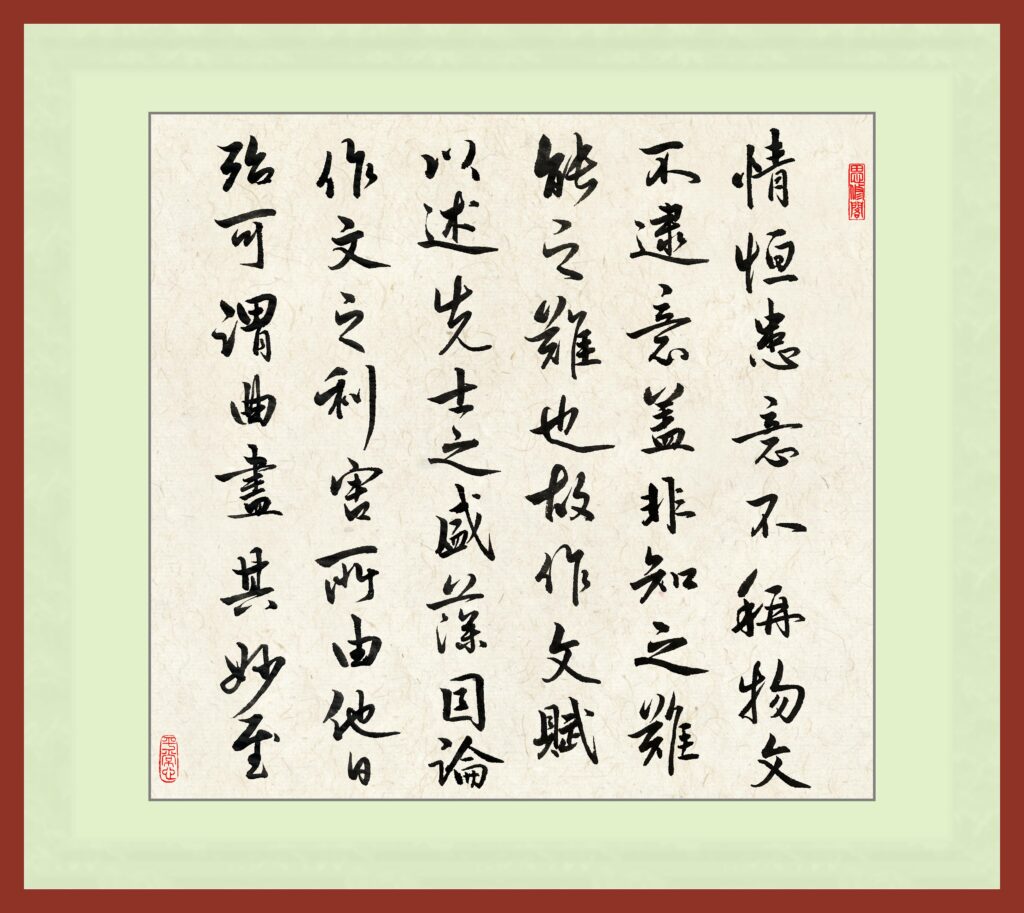 情恒患意不稱物文
不逮意盖非知之難
能之難也故作文賦
以述先士之盛藻因論
作文之利害所由他日
殆可謂曲盡其妙至
平常心